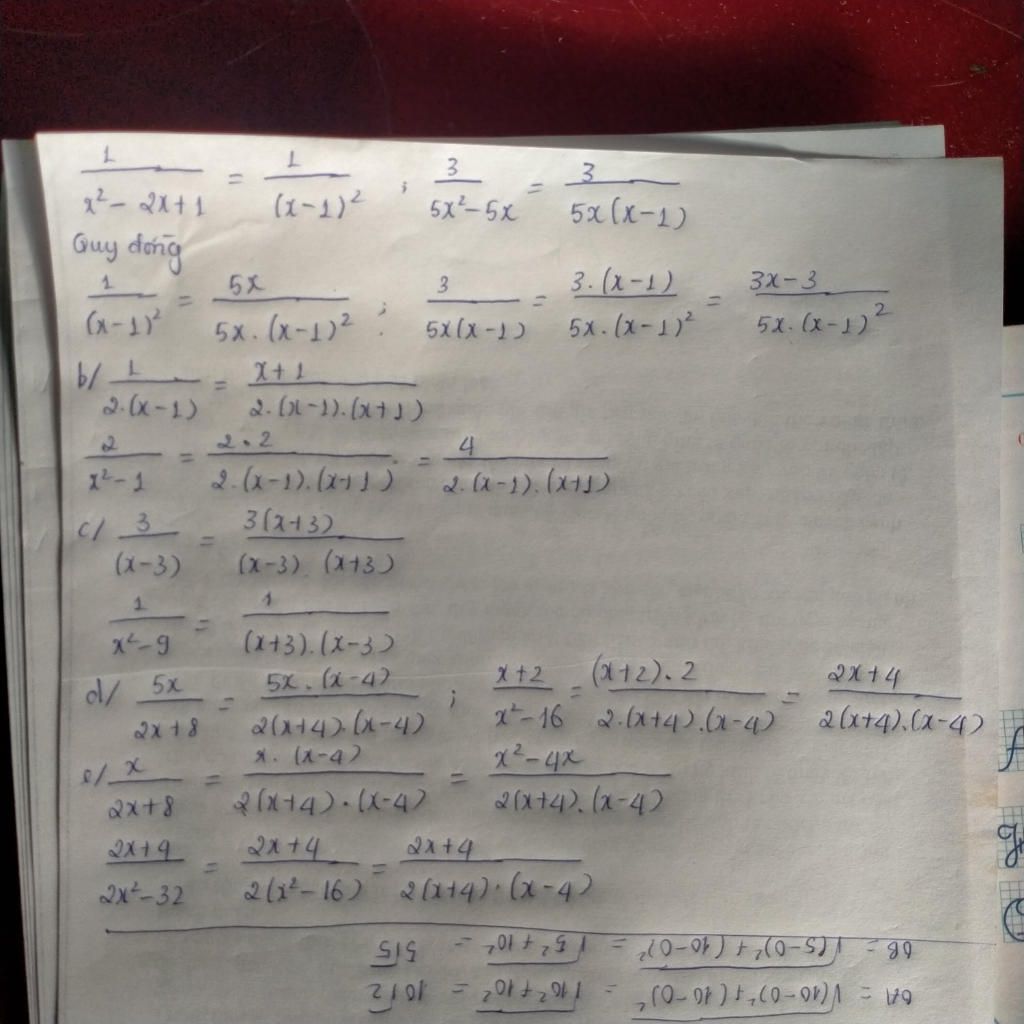 1/(x² - 2x + 1) = 1/(x - 1)² ; 3/(5x² - 5x) = 3/(5x(x - 1))
Quy đồng
1/(x - 1)² = 5x/(5x.(x - 1)²) ; 3/(5x(x - 1)) = 3.(x - 1)/(5x.(x - 1)²) = (3x - 3)/(5x.(x - 1)²)
b/ 1/(2.(x - 1)) = (x + 1)/(2.(x - 1).(x + 1))
2/(x² - 1) = 2.2/(2.(x - 1).(x + 1)) = 4/(2.(x - 1).(x + 1))
c/ 3/(x - 3) = 3(x + 3)/((x - 3).(x + 3))
1/(x² - 9) = 1/((x + 3).(x - 3))
d/ 5x/(2x + 8) = 5x.(x - 4)/(2(x + 4).(x - 4)) ; (x + 2)/(x² - 16) = (x + 2).2/(2.(x + 4).(x - 4)) = (2x + 4)/(2(x + 4).(x - 4))
e/ x/(2x + 8) = x.(x - 4)/(2(x + 4).(x - 4)) = (x² - 4x)/(2(x + 4).(x - 4))
(2x + 4)/(2x² - 32) = (2x + 4)/(2(x² - 16)) = (2x + 4)/(2(x + 4).(x - 4))
OA = √((10 - 0)² + (10 - 0)²) = √(10² + 10²) = 10√2
OB = √((5 - 0)² + (10 - 0)²) = √(5² + 10²) = 5√5